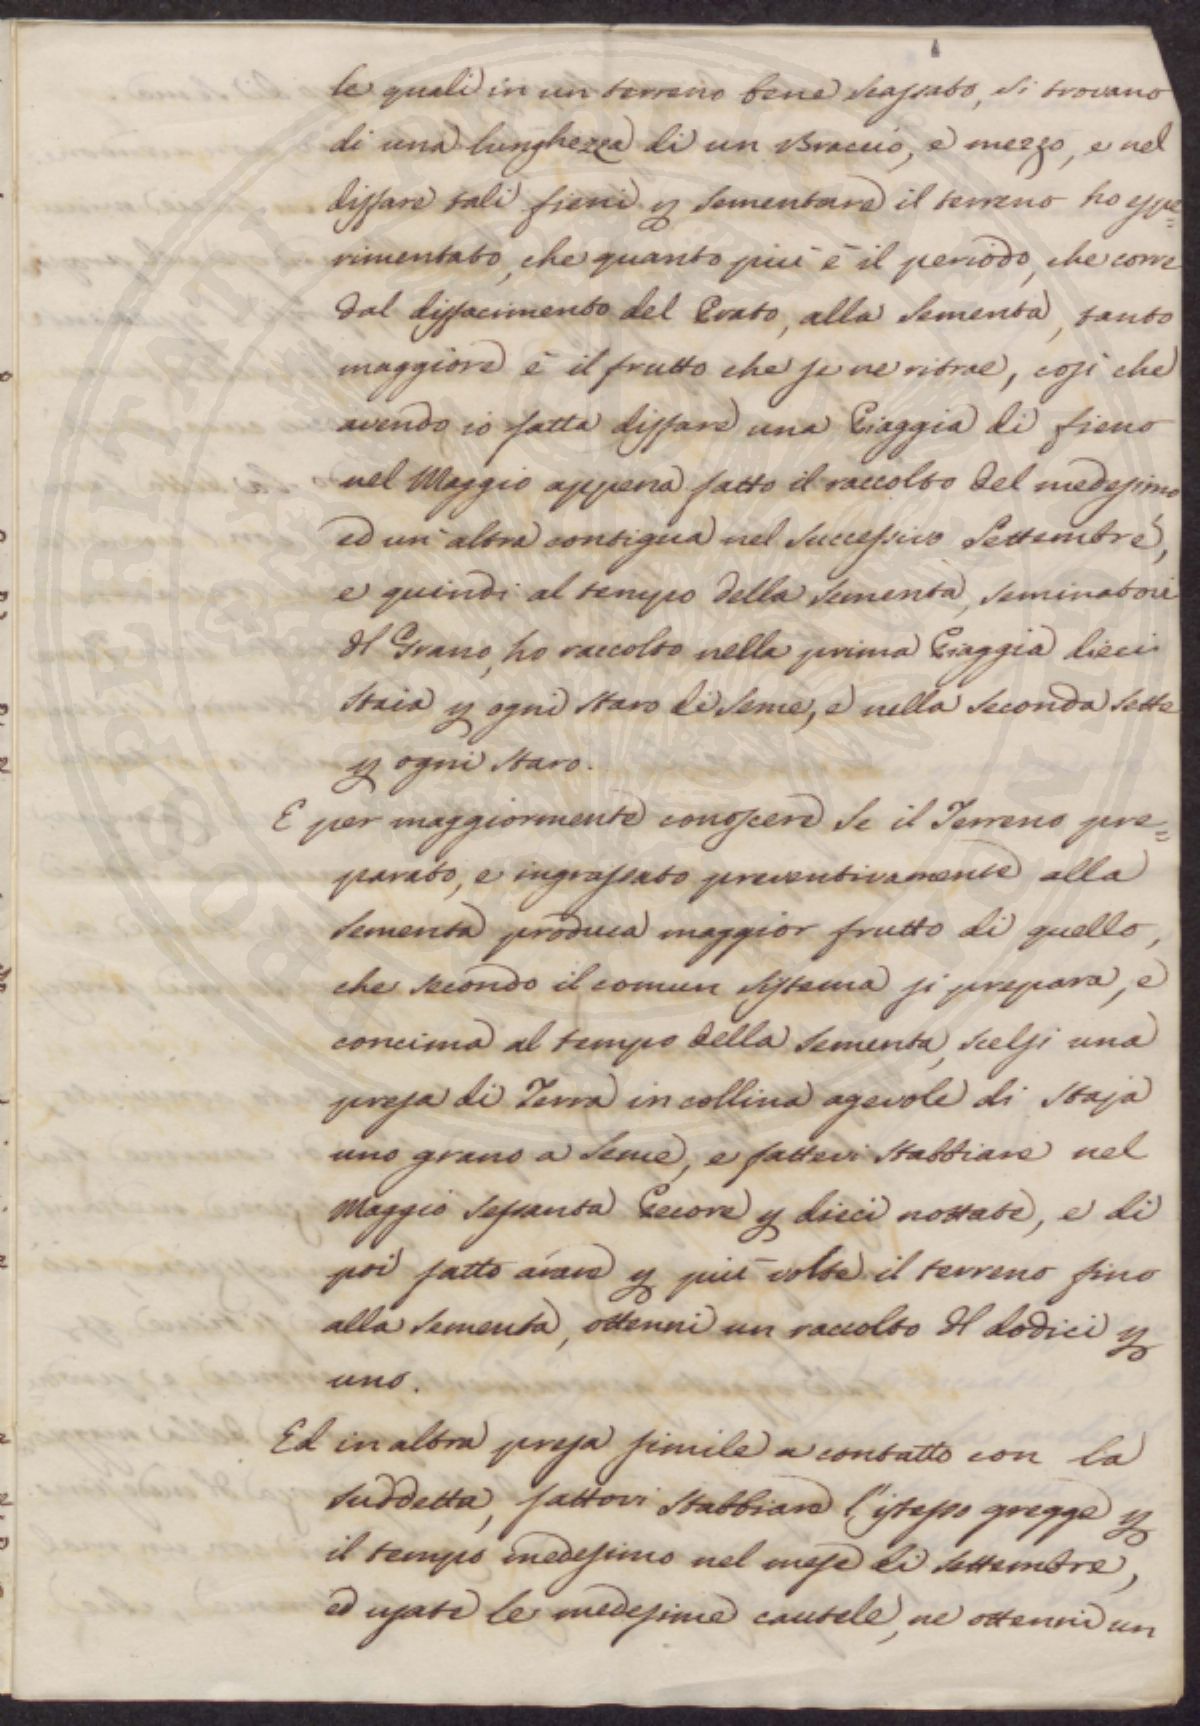 le quali in un terreno bene scassato, si trovano
di una lunghezza di un Braccio, e mezzo, e nel
disfare tali fieni p sementare il terreno ho espe=
rimentato, che quanto più è il periodo, che corre
dal disfacimento del Prato, alla sementa, tanto
maggiore è il frutto che se ne ritrae, così che
avendo io fatta disfare una Piaggia di fieno
nel Maggio appena fatto il raccolto del medesimo
ed un'altra contigua nel successivo Settembre,
e quindi al tempo della sementa, seminatovi
il Grano, ho raccolto nella prima Piaggia dieci
staia p ogni staro di seme, e nella seconda sette
p ogni staro.
E per maggiormente conoscere se il Terreno pre=
parato, e ingrassato preventivamente alla
sementa produca maggior frutto di quello,
che secondo il comun sistema si prepara, e
concima al tempo della sementa, scelsi una
presa di Terra in collina agevole di staja
uno grano a seme, e fattevi stabbiare nel
Maggio sessanta Pecore p dieci nottate, e di
poi fatto arare p più volte il terreno fino
alla sementa, ottenni un raccolto del dodici p
uno.
Ed in altra presa simile a contatto con la
suddetta, fattovi stabbiare l'istesso gregge p
il tempo medesimo nel mese di settembre,
ed usate le medesime cautele, ne ottenni un
PUBLICAE
PROSPERITATI